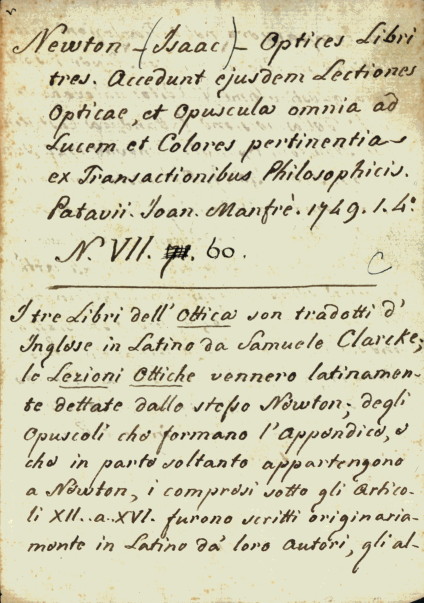 Newton - (Isaac) - Optices Libri
tres. Accedunt ejusdem Lectiones
Opticae, et Opuscula omnia ad
Lucem et Colores pertinentia
ex Transactionibus Philosophicis.
Patavii. Ioan. Manfrè. 1749. 1. 4.º
N.º VII. 60.
I tre Libri dell' Ottica son tradotti d'
Inglese in Latino da Samuele Clarcke;
le Lezioni Ottiche vennero latinamen-
te dettate dallo stesso Newton; degli
Opuscoli che formano l'Appendice, e
che in parte soltanto appartengono
a Newton, i compresi sotto gli Artico-
li XII. a XVI. furono scritti originaria-
mente in Latino da' loro Autori, gli al-